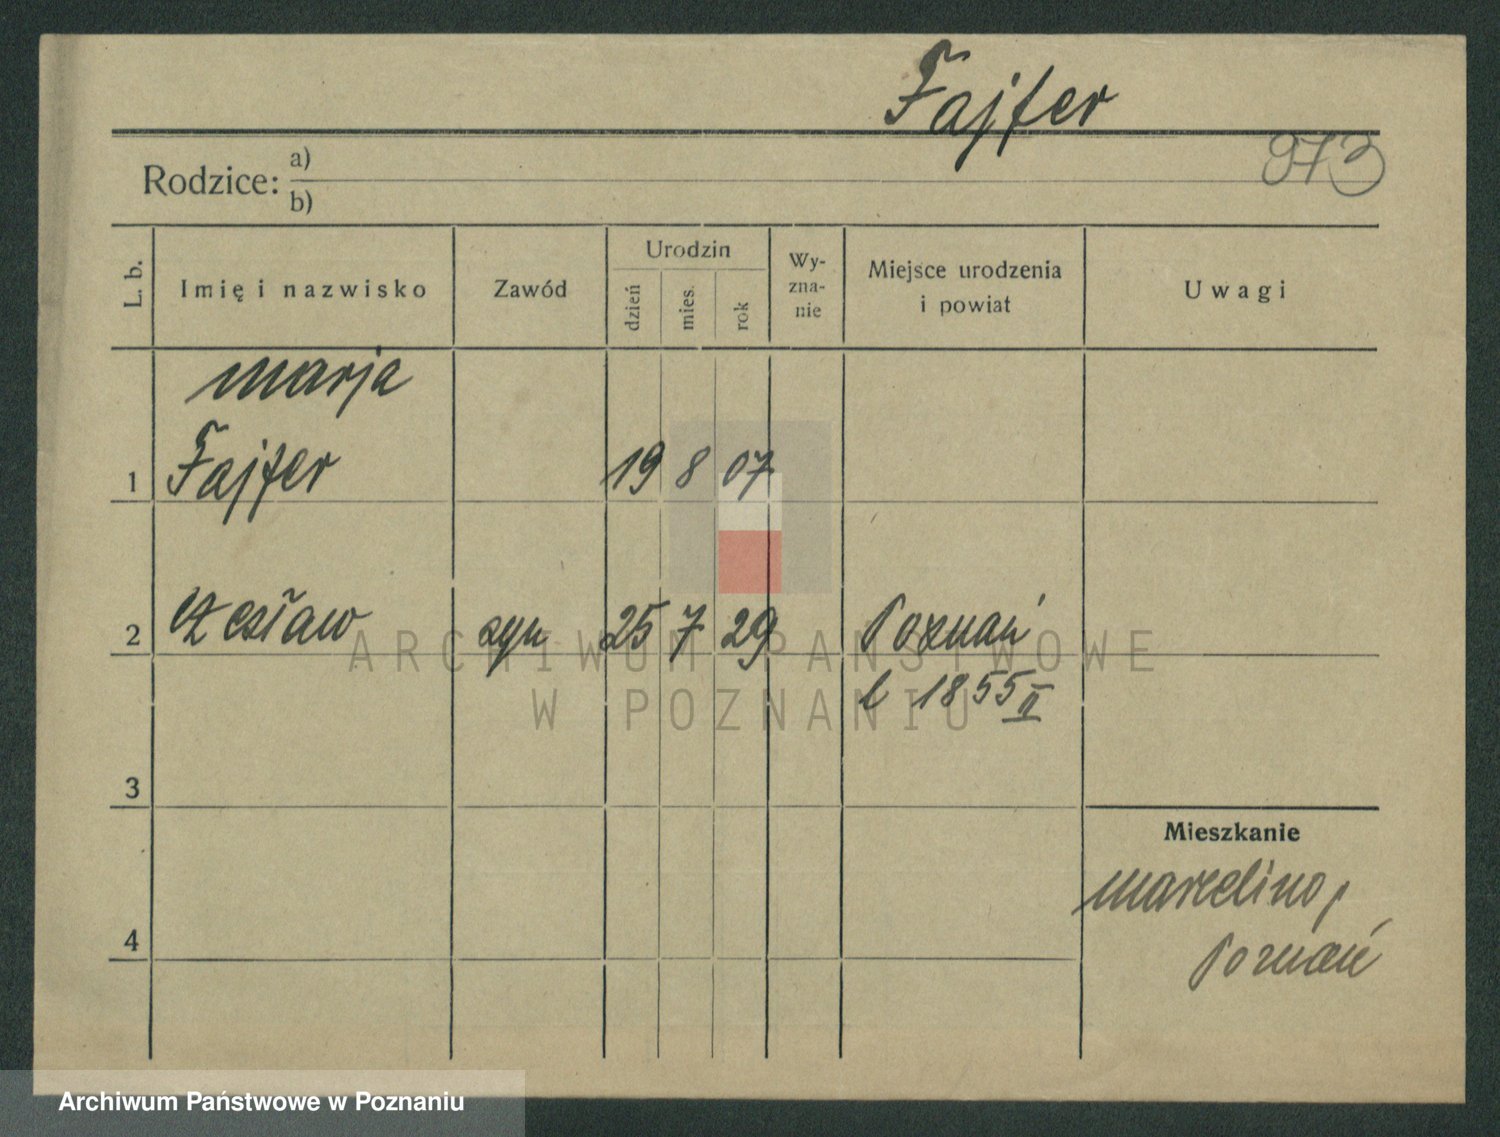 Fajfer
973
Rodzice: a)
b)
L. b.
Imię i nazwisko
Zawód
Urodzin
dzień
mies.
rok
Wy-
zna-
nie
Miejsce urodzenia
i powiat
Uwagi
Marja
1 Fajfer 19 8 07
2 Czesław syn 25 7 29 Poznań
1855 II
3
Mieszkanie
Marcelino,
Poznań
4
ARCHIWUM PAŃSTWOWE
W POZNANIU
Archiwum Państwowe w Poznaniu